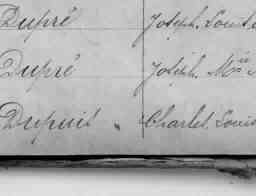 Dupré Joseph, Louis
Dupré Joseph, M
Dupuis " Charles, Louis